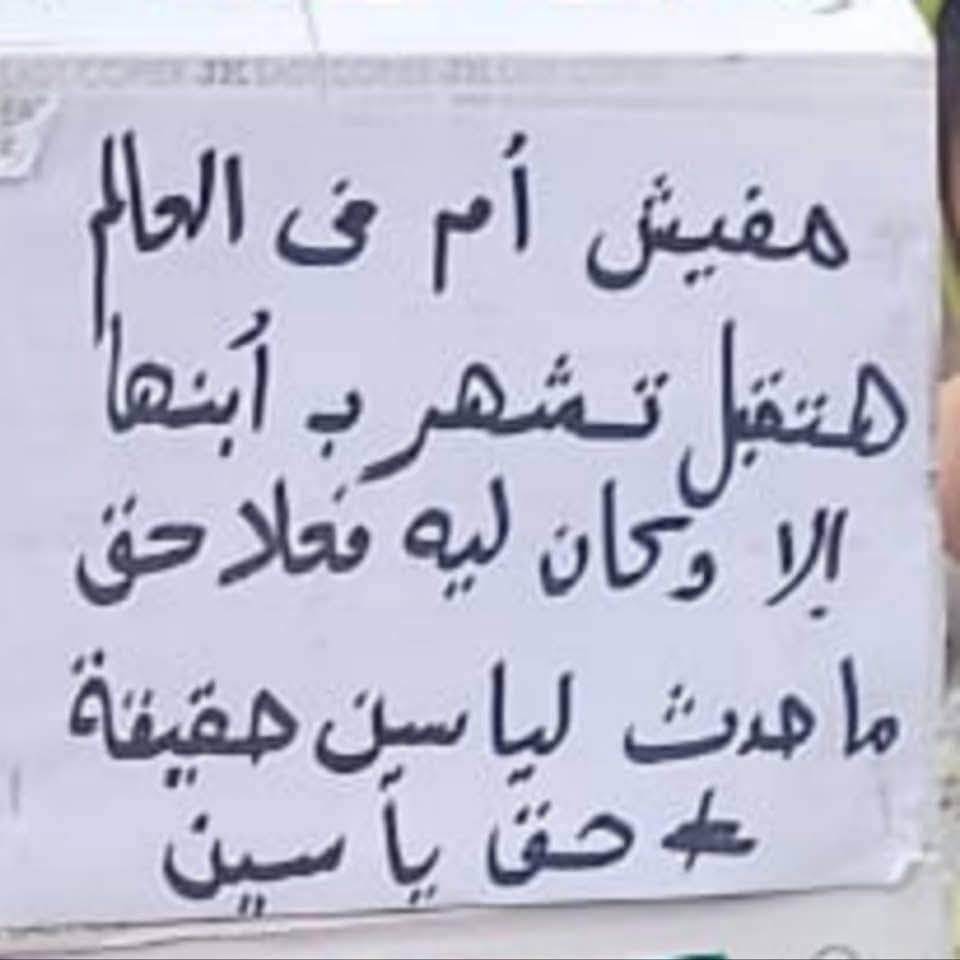 مفيش أم فى العالم
هتقبل تشهر بـ أبنها
إلا وكان ليه فعلا حق
ما حدث لياسين حقيقة
# حق ياسين